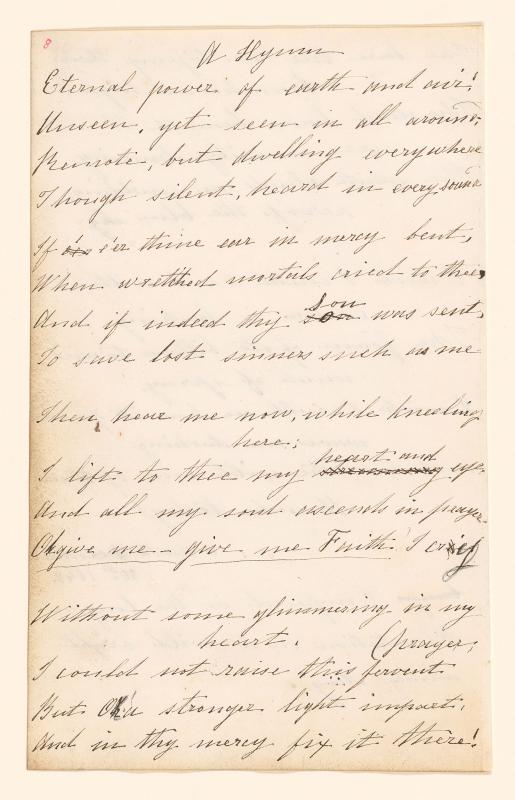 8
A Hymn
Eternal power of earth and air!
Unseen, yet seen in all around,
Remote, but dwelling everywhere
Though silent, heard in every sound
If e'er thine ear in mercy bent,
When wretched mortals cried to thee,
And if indeed thy son son was sent,
To save lost sinners such as me
Then hear me now, while kneeling
here;
I lift to thee my heart and eye
And all my soul ascends in prayer
Oh give me - give me Faith I cry
Without some glimmering in my
heart. (prayer;
I could not raise this fervent
But Oh a stronger light impart,
And in thy mercy fix it there!